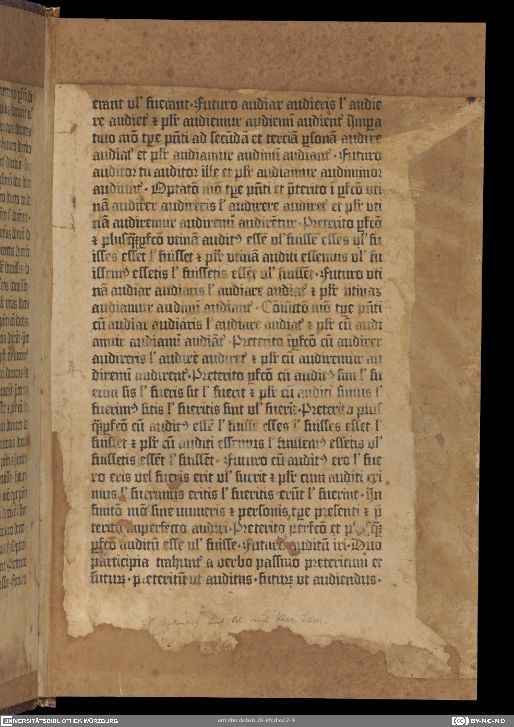 erant ul' fuerant. Futuro audiar audieris l' audie
re audiet' ⁊ pl'r audiemur audiemi audient' Impa
tuo mō tꝑe pn̄ti ad secūdā et terciā ꝑsonā audire
audiat' et pl'r audiamur audimi audiant'. Futuro
auditor tu auditor ille et pl'r audiamur audiminor
audiunt'. Optatō mō tꝑe pn̄ti et p̄terito ī ꝑfcō uti
nā audirer audireris l' audirere audiret' et pl'r uti
nā audiremur audiremī audirētur. Preterito ꝑfcō
⁊ plusq̄ꝑfcō utinā auditꝰ essē ul' fuissē esses ul' fu
isses esset l' fuisset ⁊ pl'r utinā auditi essemus ul' fu
issemꝰ essetis l' fuissetis essēt ul' fuissēt. Futuro uti
nā audiar audiaris l' audiare audiat' ⁊ pl'r utinaꝫ
audiamur audiamī audiant'. Cōiūctō mō tꝑe pn̄ti
cū audiar audiaris l' audiare audiat' ⁊ pl'r cū audi
amur audiamī audiāt'. Preterito īꝑfcō cū audirer
audireris l' audire audiret' ⁊ pl'r cū audiremur au
diremī audirent'. Preterito ꝑfcō cū auditꝰ sim l' fu
erim sis l' fueris sit l' fuerit ⁊ pl'r cū auditi simus l'
fuerimꝰ sitis l' fueritis sint ul' fuerīt. Preterito plus
q̄ꝑfcō cū auditꝰ essē l' fuissē esses l' fuisses esset l'
fuisset ⁊ pl'r cū auditi essemus l' fuissemꝰ essetis ul'
fuissetis essēt l' fuissēt. Futuro cū auditꝰ ero l' fue
ro eris vel fueris erit ul' fuerit ⁊ pl'r cum auditi eri
mus l' fuerimus eritis l' fueritis erūt l' fuerint. In
finitō mō sine numeris ⁊ personis tꝑe presenti ⁊ p̄
terito imperfecto audiri. Preterito perfcō et plusq̄
ꝑfcō auditū esse ul' fuisse. Futuro auditū iri. Duo
participia trahunt' a verbo passivo preteritum et
futurꝫ. preteritū ut auditus. futurꝫ ut audiendus.
UNIVERSITÄTSBIBLIOTHEK WÜRZBURG
BY-NC-ND